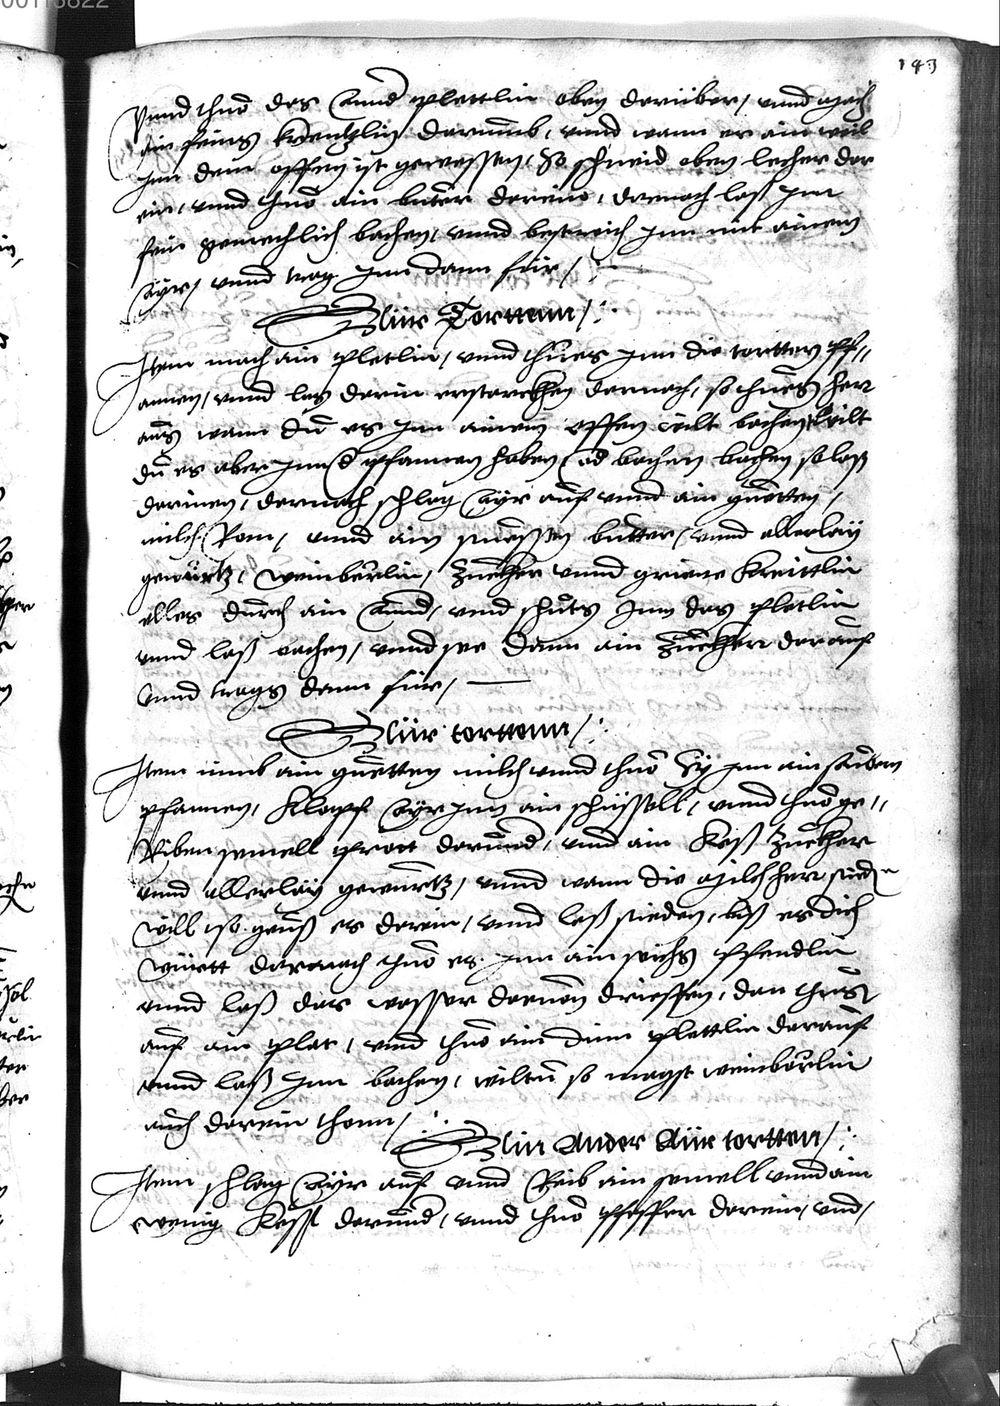 143
vnnd thuo das annd plettlin oben darüber, vnnd mach
ain feins krentzlin darumb, vnnd wann er ain weil
jnn dem offen ist gewessen, So schneid oben lecher dar
ein, vnnd thuo ain buter darein, darnach laß jnn
fein gemechlich bachen, vnnd bestreich jnn mit ainem
ayr, vnnd trag jnn dann für /
Ayür Torttenn /
Item mach ain pletlin, vnnd thues jnn die tortten pf,,
annen, vnnd las darin erstarckhen darnach, so thues her
aus wann du es jnn ainem offen wilt bachen, wilt
du es aber jnn d pfannen haben bachen so laß
darinen, darnach schlag ayr auf vnnd ain guotten,
milch Rom, vnnd ain suessen butter, vnnd allerlay
gewürtz, weinberlin, Zucker vnnd griene kreittlin
alles durch ain annd, vnd schuts jnn das pletlin
vnnd laß bachen, vnnd see dann ain Zuckher darauf
vnnd trags dann für /
Ayür torttenn /
Item nimb ain guotten milch vnnd thuo sy jnn ain saubern
pfannen, klopf ayr jnn ain schüssell, vnnd thuo ge,,
Riben semell prott darunnd, vnd ain keß Zuckher
vnnd allerlay gewurtz, vnnd wann die milch her sieden
will so geuß es darein, vnnd laß sieden, biß es dich
württ darnach thuo es jnn ain seichs pfendlin
vnnd laß das wasser darvon drieffen, dan thues
auf ain plat, vnd thuo ain dinn plettlin darauf
vnnd laß jnn bachen, wiltu so magst weinberlin
auch darein thonn /
Ain Ander Ayür tortten /
Item schlag ayr auf vnnd Reib ain semell vnnd ain
wenig keß darunnd, vnnd thuo pfeffer darein, vnd,